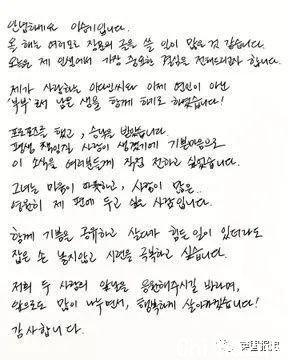 안녕하세요 이승기입니다.
올 해는 여러모로 장문의 글을 쓸 일이 많은 것 같습니다.
오늘은 제 인생에서 가장 중요한 결심을 전해드리려 합니다.
제가 사랑하는 이다인씨와 이제 연인이 아닌
부부로서 남은 생을 함께 하기로 하였습니다!
프로포즈를 했고, 승낙을 받았습니다.
평생 책임질 사람이 생겼기에 기쁜마음으로
이 소식을 여러분들께 직접 전하고 싶었습니다.
그녀는 마음이 따뜻하고, 사랑이 많은..
영원히 제 편에 두고 싶은 사람입니다.
함께 기쁨을 공유하고 살다가 힘든 일이 있더라도
잡은 손 놓지않고 시련을 극복하고 싶습니다.
저희 두 사람의 앞날을 응원해주시길 바라며,
앞으로도 많이 나누면서, 행복하게 살아가겠습니다!
감사합니다.